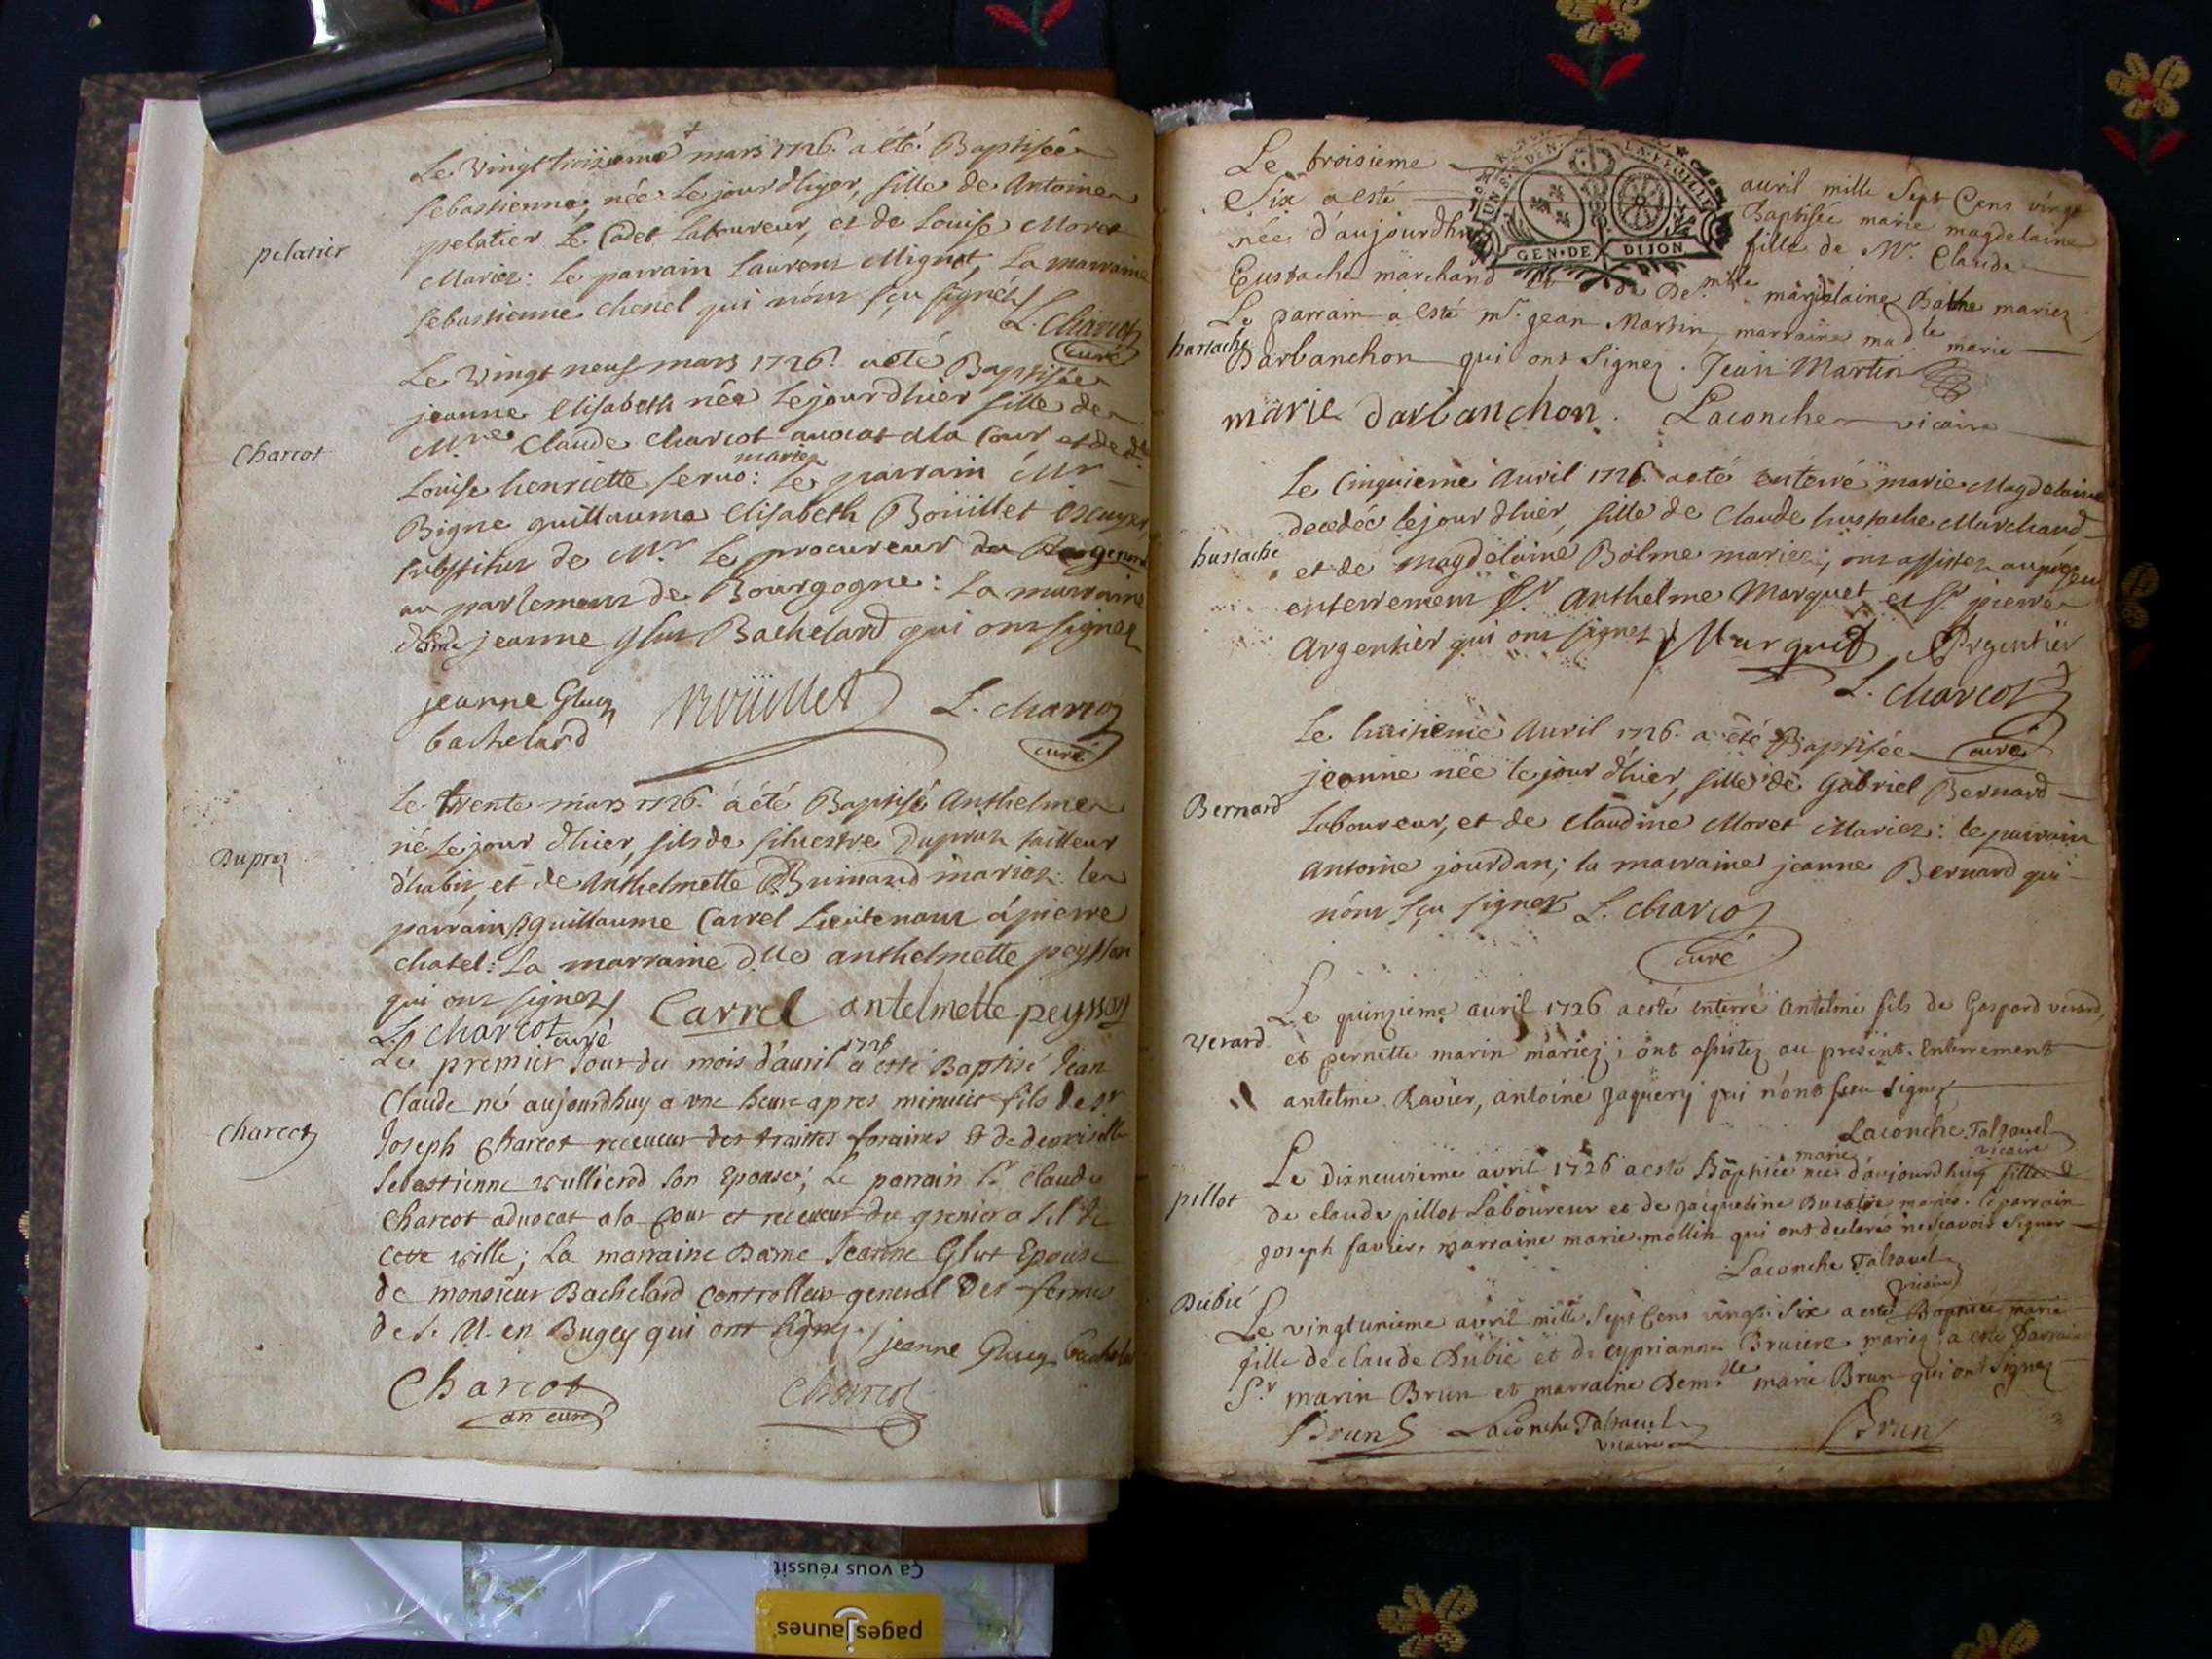 Le vingt troisieme mars 1726. a été Baptisée
Sebastienne, née Le jour d'hyer, fille de Antoine
pelatier Le Cadet Laboureur, et de Louise Moret
pelatier
Mariez: Le parrain Laurent Mignot, La marraine
Sebastienne chenel qui n'ont sçu signéz
L. Charcot
curé
Le vingt neuf mars 1726. a été Baptisée
jeanne Elisabeth née Le jour d'hier fille de
Mre Claude Charcot avocat a la Cour, et de de
Charcot
mariez
Louise henriette : Le parrain Mr
Bigne guillaume Elisabeth Boüillet Escuyer,
substitut de Mr Le procureur general
au parlement de Bourgogne: La marraine
jeanne Glut Bachelard qui ont signez
jeanne Glut Boüillet L. Charcot
bachelard curé
Le trente mars 1726. a été Baptisé Anthelme
né Le jour d'hier, fils de silvestre Dupraz tailleur
Dupraz
d'habit, et de Anthelmette mariez: le
parrain Sr guillaume Carrel Lieutenant à pierre
chatel: La marraine dlle anthelmette peysson
qui ont signez Carrel antelmette peysson
L. Charcot curé
1726
Le premier Jour du mois d'auril a esté Baptisé Jean
Claude né aujourdhuy a une heure apres minuit fils de sr
Charcot
Joseph Charcot receueur des traittes foraines Et de demoiselle
Sebastienne vulliend son Epouse; Le parrain Sr Claude
Charcot aduocat a la Cour et receueur du grenier a sel de
cette ville; La marraine Dame Jeanne Glut Epouse
de monsieur Bachelard Controlleur general Des fermes
de S. M. en Bugey qui ont signez. jeanne Glut bachelard
Charcot Charcot
an curé
Le troisieme auril mille Sept Cens vingt
Six a esté Baptisée marie magdelaine
née d'aujourdhuy fille de Mr. Claude
GEN. DE DIJON
Eustache marchand et de De.mlle magdelaine Balme mariez
Le parrain a esté mr. jean Martin, marraine madlle marie
hustache
Darbanchon qui ont signez. Jean Martin
marie darbanchon. Laconche vicaire
Le Cinquieme Auril 1726. a eté enterré marie Magdelaine
decedée le jour d'hier, fille de Claude hustache Marchand
hustache
et de magdelaine Balme mariez; ont assistez au présent
enterrement Sr. Anthelme Marquet et Sr. pierre
Argentier qui ont signez Marquet Argentier
L. Charcot
curé
Le huitieme Auril 1726. a été Baptisée
jeanne née le jour d'hier, fille de Gabriel Bernard
Bernard
Laboureur, et de Claudine Moret Mariez: le parrain
Antoine jourdan; la marraine jeanne Bernard qui
n'ont sçu signer L. Charcot
curé
Le quinzieme auril 1726 a esté enterré Antelme fils de Gaspard verard,
Verard
et pernette marin mariez; ont assistez au present Enterrement
antelme Ravier, antoine Jaquery qui n'ont sceu signez
Laconche Talpavel
vicaire
marie
Le dixneuvieme avril 1726 a esté Baptisée née d'aujourdhuy fille de
pillot
de claude pillot Laboureur et de jacqueline mariez. le parrain
joseph favier, marraine marie mollin qui ont declaré ne sçavoir signer
Laconche Talpavel
vicaire
Dubié
Le vingtunieme avril mille Sept Cens vingt Six a esté Baptisée marie
fille de claude Dubié et de cyprianne Bruiere mariez; a esté Parrain
Sr. marin Brun et marraine Dem.lle marie Brun qui ont Signez
Brun Laconche Talpavel Brun
vicaire
Ça vous réussit
pagesjaunes